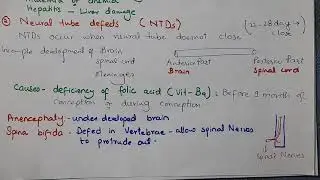 Hepatitis - Liver damage
② Neural tube defeds (NTDs) [22-28 day → close]
NTDs occur when neural tube doesnot close
Incomplete development of Brain,
Spinal cord
Meninges
Anterior Part Posterior Part
Brain Spinal cord
Causes - deficiency of folic acid (Vit-B9) : Before 3 months of
conception or during conception
Anencephaly - under developed brain
Spina bifida - Defed in Vertebrae - allow Spinal Nerves
to protrude out.
Spinal Nerves